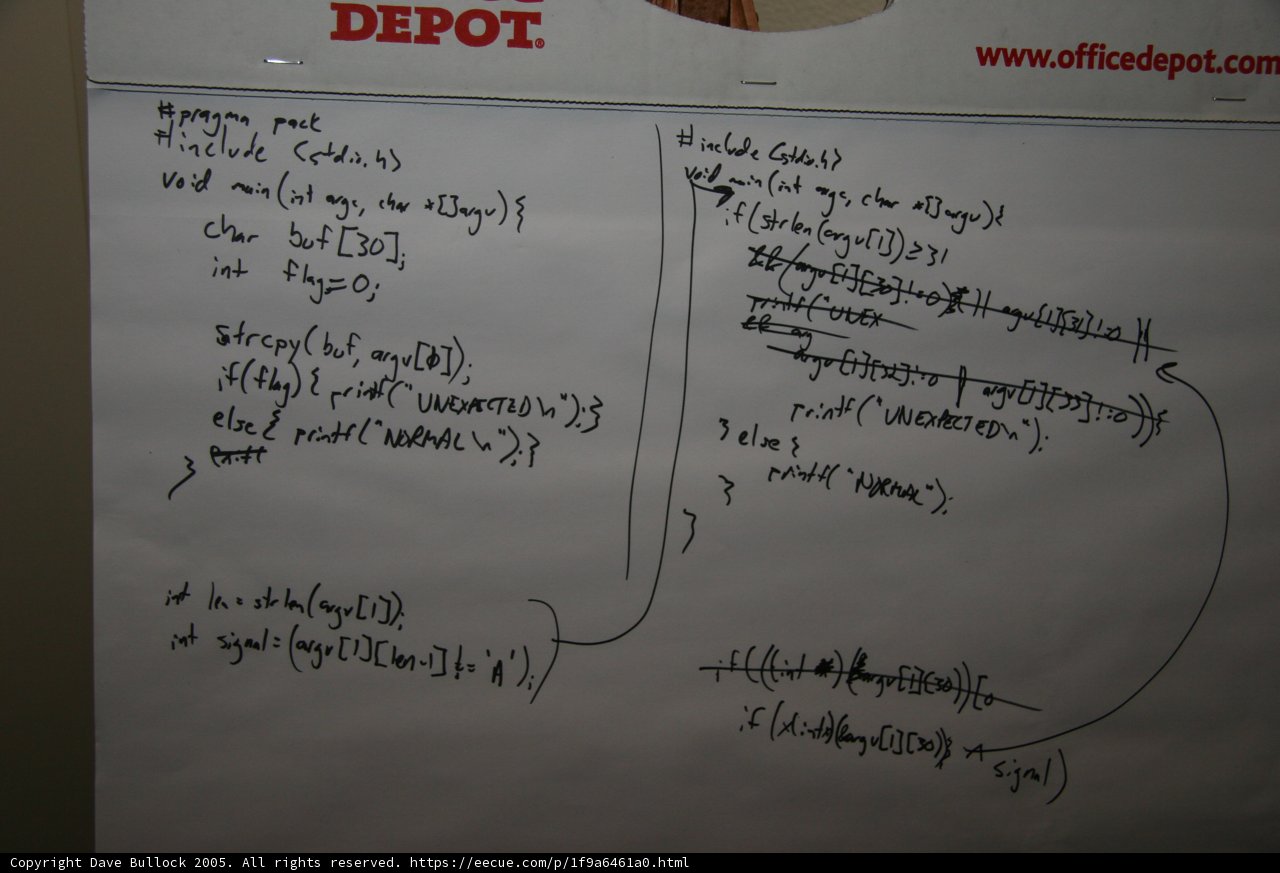 DEPOT®
www.officedepot.com
#pragma pack
#include <stdio.h>
void main(int argc, char *[]argv){
char buf[30];
int flag=0;
strcpy(buf, argv[0]);
if(flag){ printf("UNEXPECTED\n");}
else{ printf("NORMAL\n");}
printf
}
int len = strlen(argv[1]);
int signal = (argv[1][len-1] != 'A');
#include <stdio.h>
void main(int argc, char *[]argv){
if(strlen(argv[1]) ≥ 31
(argv[1][30] != 0) || argv[1][31] != 0 ||
printf("UNEX
argv[1][32] != 0 || argv[1][33] != 0)){
printf("UNEXPECTED\n");
} else {
printf("NORMAL");
}
}
if(((int *)(argv[1][30))[0
if(*(int*)(&argv[1][30]) ^ signal)
Copyright Dave Bullock 2005. All rights reserved. https://eecue.com/p/1f9a6461a0.html